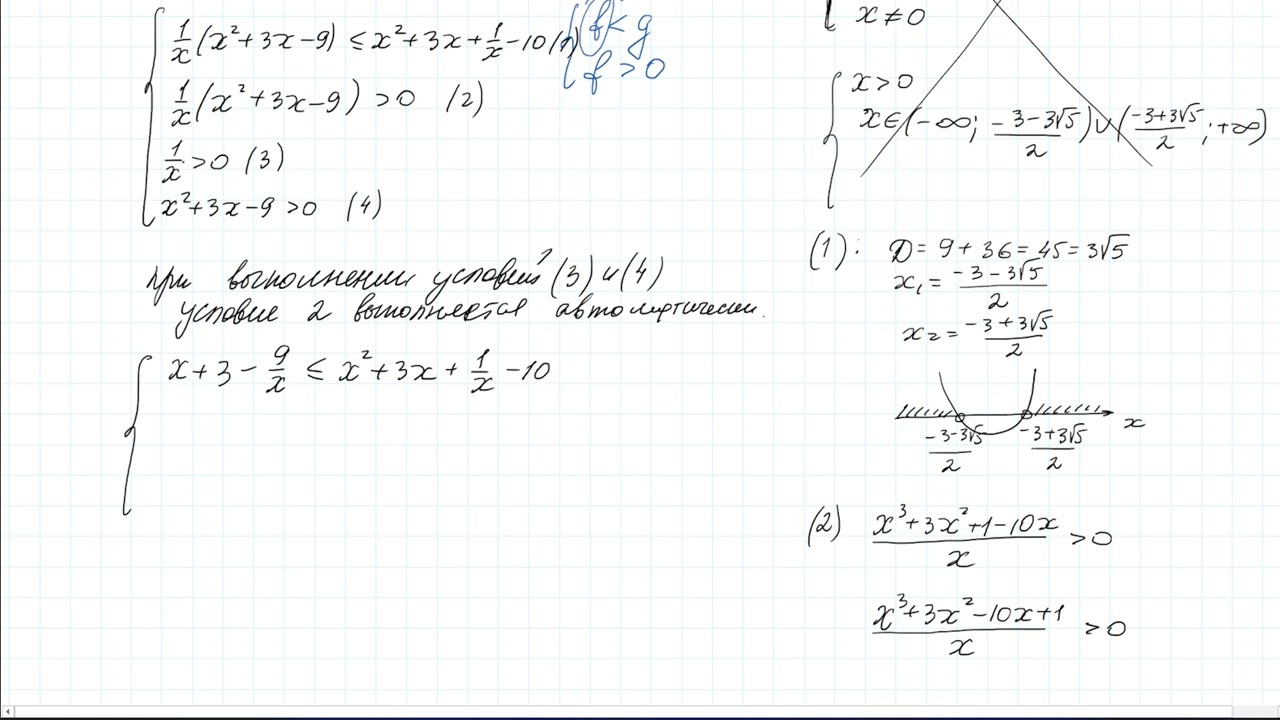 1/x (x²+3x-9) ≤ x²+3x+1/x-10 (1)
1/x (x²+3x-9) >0 (2)
1/x >0 (3)
x²+3x-9 >0 (4)
f < g
f > 0
при выполнении условий (3) и (4)
условие 2 выполняется автоматически.
x+3-9/x ≤ x²+3x+1/x-10
x≠0
x>0
x∈(-∞; (-3-3√5)/2)∪((-3+3√5)/2; +∞)
(1): D=9+36=45=3√5
x₁=(-3-3√5)/2
x₂=(-3+3√5)/2
x
(-3-3√5)/2 (-3+3√5)/2
(2) (x³+3x²+1-10x)/x >0
(x³+3x²-10x+1)/x >0